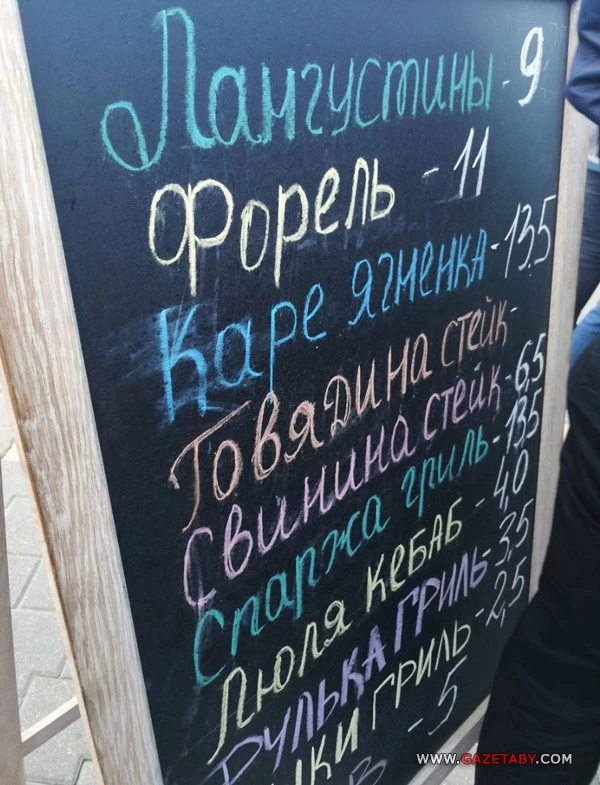 Лангустины - 9
Форель - 11
Каре ягненка - 13,5
Говядина стейк -
Свинина стейк - 6,5
Спаржа гриль - 13,5
Люля кебаб - 4,0
Рулька гриль - 3,5
гриль - 2,5
- 5
WWW.GAZETABY.COM